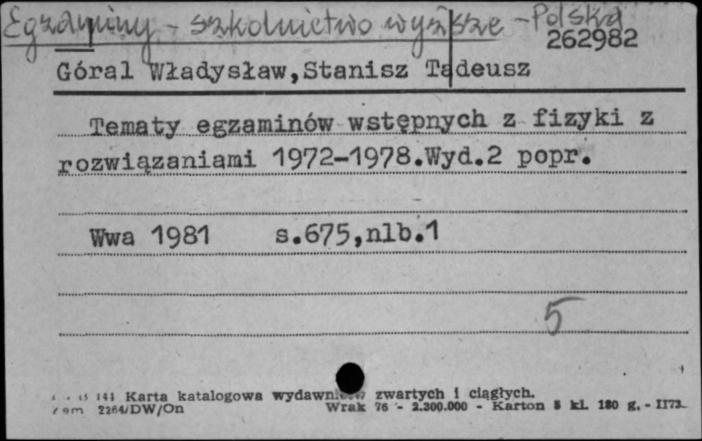 Egzaminy - szkolnictwo wyższe - Polska
262982
Góral Władysław,Stanisz Tadeusz
Tematy egzaminów wstępnych z fizyki z
rozwiązaniami 1972-1978.Wyd.2 popr.
Wwa 1981 s.675,nlb.1
5
141 Karta katalogowa wydawnictw zwartych i ciągłych.
2264/DW/On Wrak 76 - 2.300.000 - Karton 8 kl. 180 g. - II73